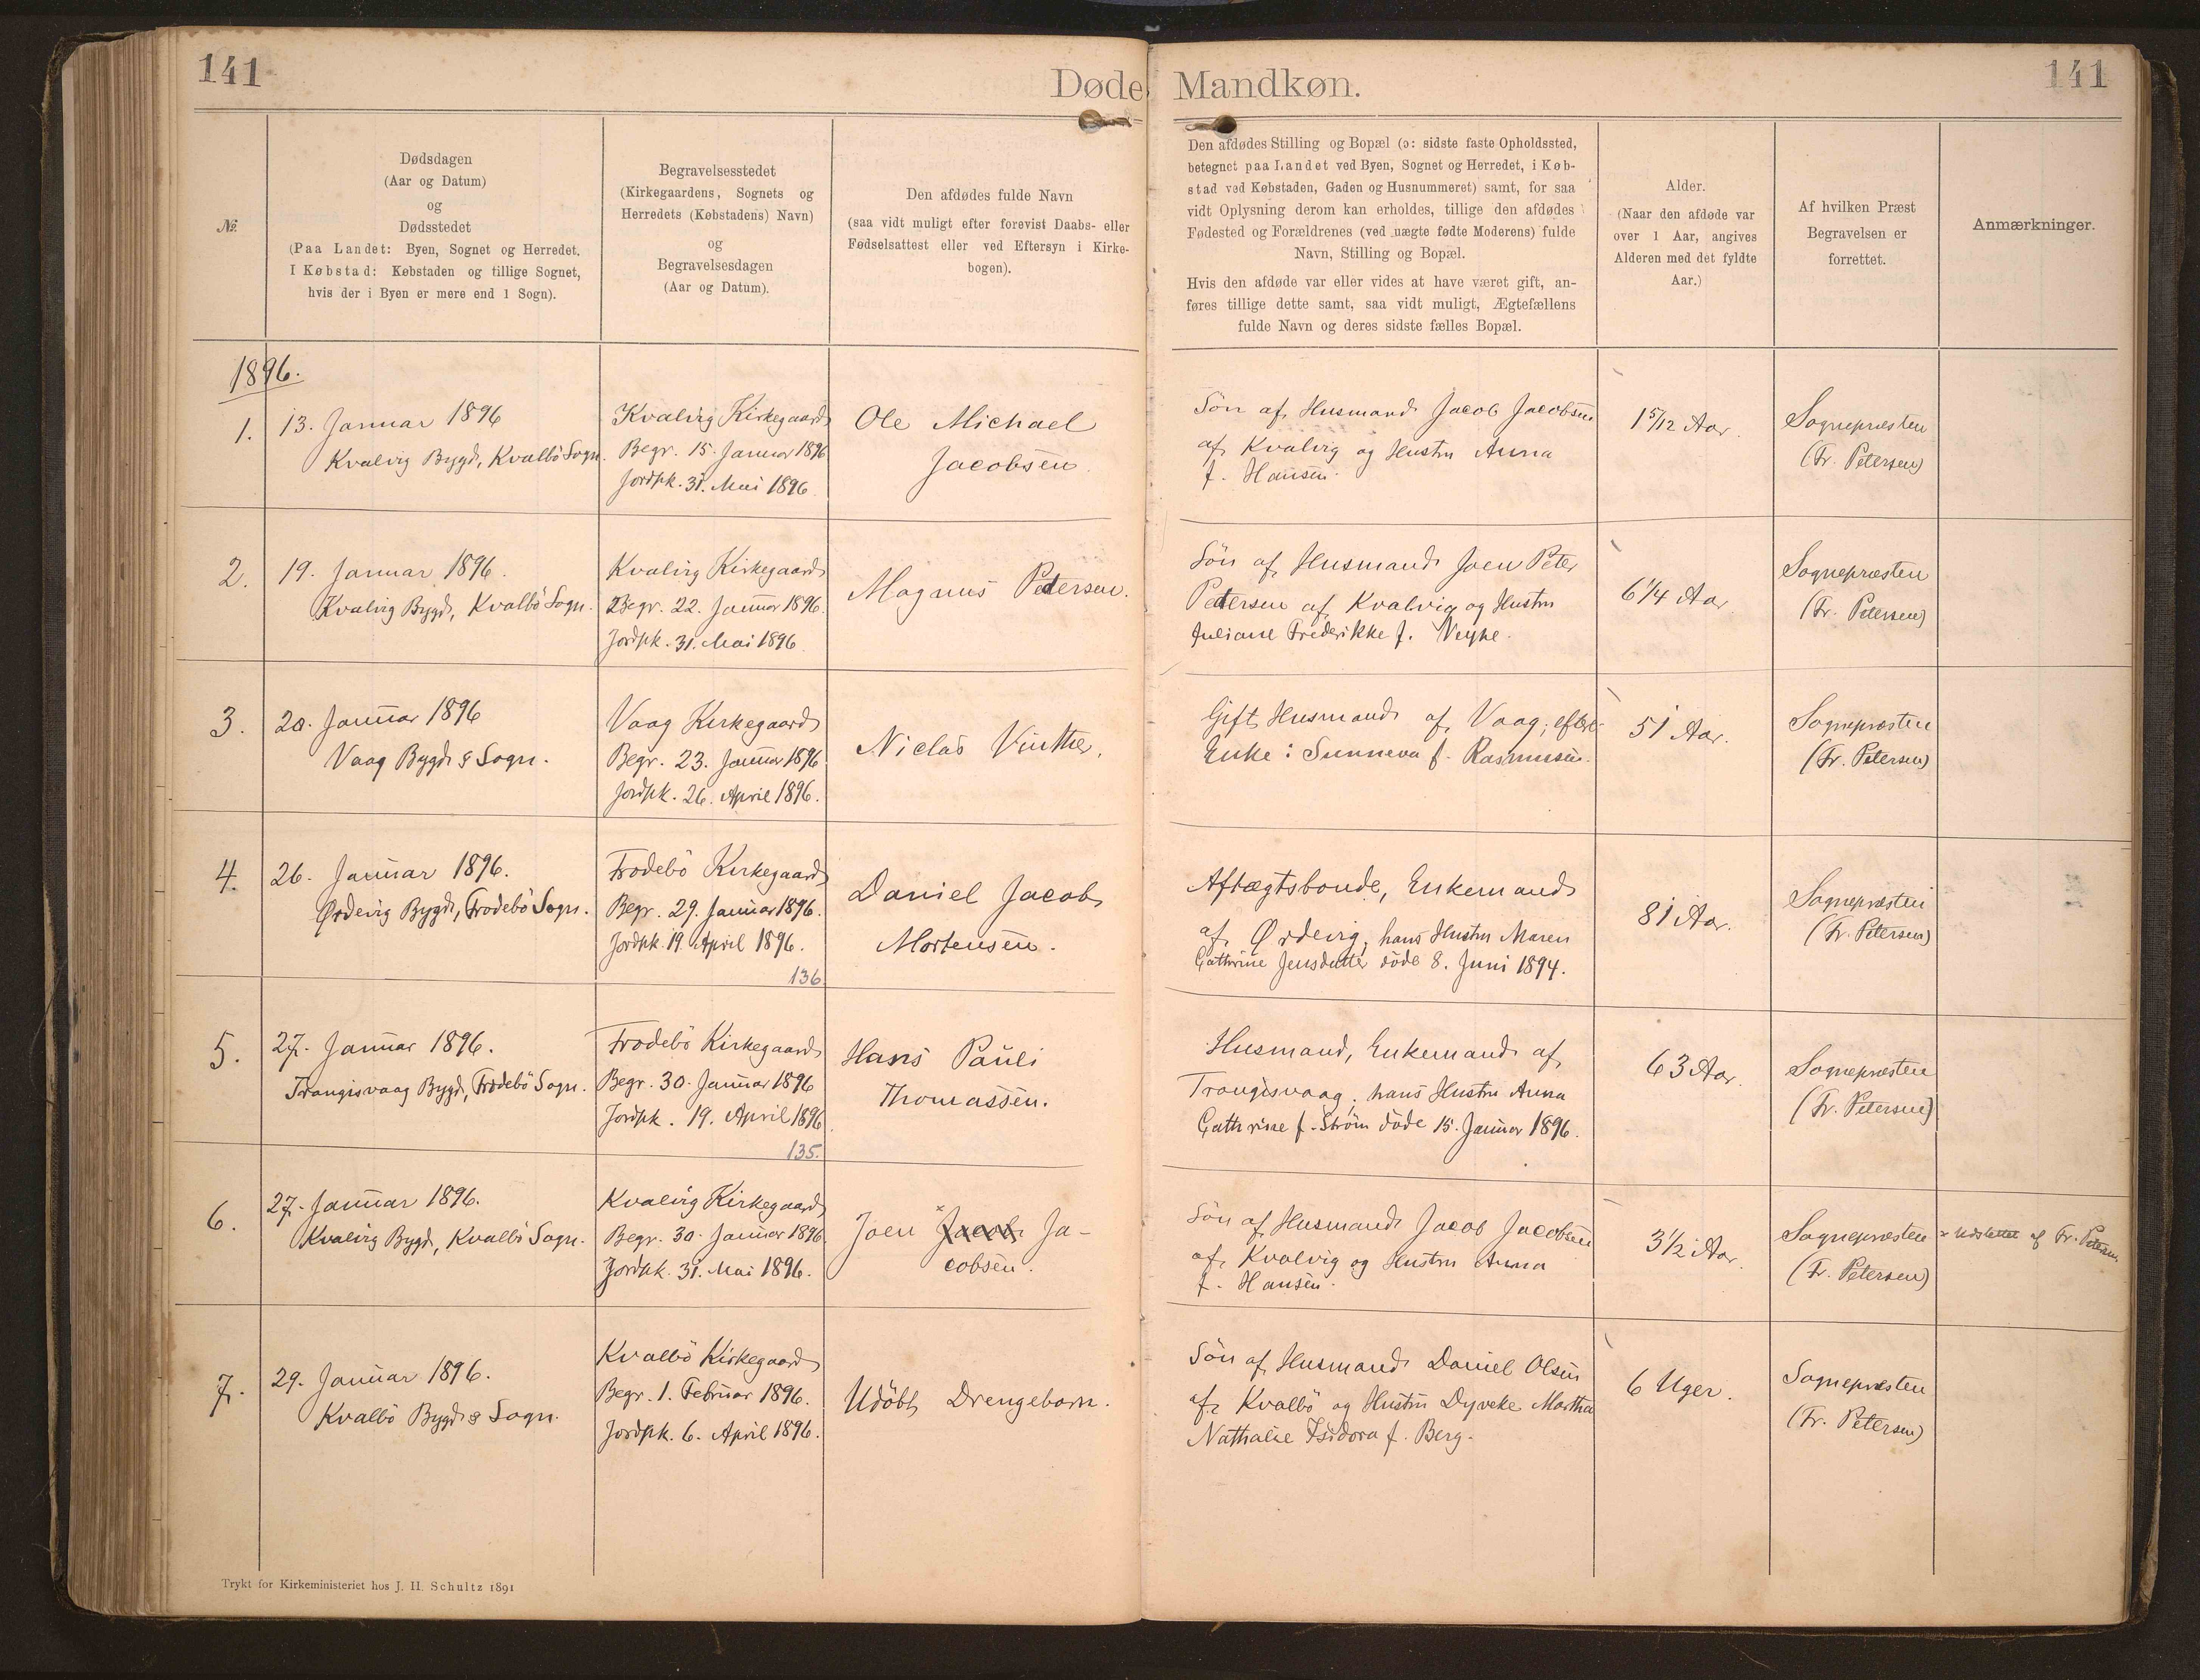 141
Døde Mandkøn.
141
№
Dødsdagen
(Aar og Datum)
og
Dødsstedet
(Paa Landet: Byen, Sognet og Herredet.
I Købstad: Købstaden og tillige Sognet,
hvis der i Byen er mere end 1 Sogn).
Begravelsesstedet
(Kirkegaardens, Sognets og
Herredets (Købstadens) Navn)
og
Begravelsesdagen
(Aar og Datum).
Den afdødes fulde Navn
(saa vidt muligt efter forevist Daabs- eller
Fødselsattest eller ved Eftersyn i Kirke-
bogen).
Den afdødes Stilling og Bopæl (ɔ: sidste faste Opholdssted,
betegnet paa Landet ved Byen, Sognet og Herredet, i Køb-
stad ved Købstaden, Gaden og Husnummeret) samt, for saa
vidt Oplysning derom kan erholdes, tillige den afdødes
Fødested og Forældrenes (ved uægte fødte Moderens) fulde
Navn, Stilling og Bopæl.
Hvis den afdøde var eller vides at have været gift, an-
føres tillige dette samt, saa vidt muligt, Ægtefællens
fulde Navn og deres sidste fælles Bopæl.
Alder.
(Naar den afdøde var
over 1 Aar, angives
Alderen med det fyldte
Aar.)
Af hvilken Præst
Begravelsen er
forrettet.
Anmærkninger.
1896.
1.
13. Januar 1896
Kvalvig Bygd, Kvalbö Sogn.
Kvalvig Kirkegaard
Begr. 15. Januar 1896
Jordpk. 31. Mai 1896.
Ole Michael
Jacobsen.
Sön af Husmand Jacob Jacobsen
af Kvalvig og Hustru Anna
f. Hansen.
1 5/12 Aar.
Sognepræsten
(Fr. Petersen)
2.
19. Januar 1896.
Kvalvig Bygd, Kvalbö Sogn.
Kvalvig Kirkegaard
Begr. 22. Januar 1896.
Jordpk. 31. Mai 1896.
Magnus Petersen.
Sön af Husmand Joen Peter
Petersen af Kvalvig og Hustru
Juliane Frederikke f. Veyhe.
6 1/4 Aar.
Sognepræsten
(Fr. Petersen)
3.
20. Januar 1896
Vaag Bygd & Sogn.
Vaag Kirkegaard
Begr. 23. Januar 1896
Jordpk. 26. April 1896.
Niclas Vinther.
Gift Husmand af Vaag; efterl.
Enke: Sunneva f. Rasmussen.
51 Aar.
Sognepræsten
(Fr. Petersen)
4.
26. Januar 1896.
Ørdevig Bygd, Frodebö Sogn.
Frodebö Kirkegaard
Begr. 29. Januar 1896.
Jordpk. 19. April 1896.
136.
Daniel Jacob
Mortensen.
Aftægtsbonde, Enkemand
af Ørdevig; hans Hustru Maren
Cathrine Jensdatter döde 8. Juni 1894.
81 Aar.
Sognepræsten
(Fr. Petersen)
5.
27. Januar 1896.
Trangisvaag Bygd, Frodebö Sogn.
Frodebö Kirkegaard
Begr. 30. Januar 1896
Jordpk. 19. April 1896
135.
Hans Pauli
Thomassen.
Husmand, Enkemand af
Trangisvaag; hans Hustru Anna
Cathrine f. Ström döde 15. Januar 1896.
63 Aar.
Sognepræsten
(Fr. Petersen)
6.
27. Januar 1896.
Kvalvig Bygd, Kvalbö Sogn.
Kvalvig Kirkegaard
Begr. 30. Januar 1896
Jordpk. 31. Mai 1896.
Joen Jacob Ja-
cobsen.
Sön af Husmand Jacob Jacobsen
af Kvalvig og Hustru Anna
f. Hansen.
3 1/2 Aar.
Sognepræsten
(Fr. Petersen)
× Udslettet af Fr. Petersen
7.
29. Januar 1896.
Kvalbö Bygd & Sogn.
Kvalbö Kirkegaard
Begr. 1. Februar 1896.
Jordpk. 6. April 1896.
Udöbt Drengebarn.
Sön af Husmand Daniel Olsen
af Kvalbö og Hustru Dyveke Martha
Nathalie Isidora f. Berg.
6 Uger.
Sognepræsten
(Fr. Petersen)
Trykt for Kirkeministeriet hos J. H. Schultz 1891